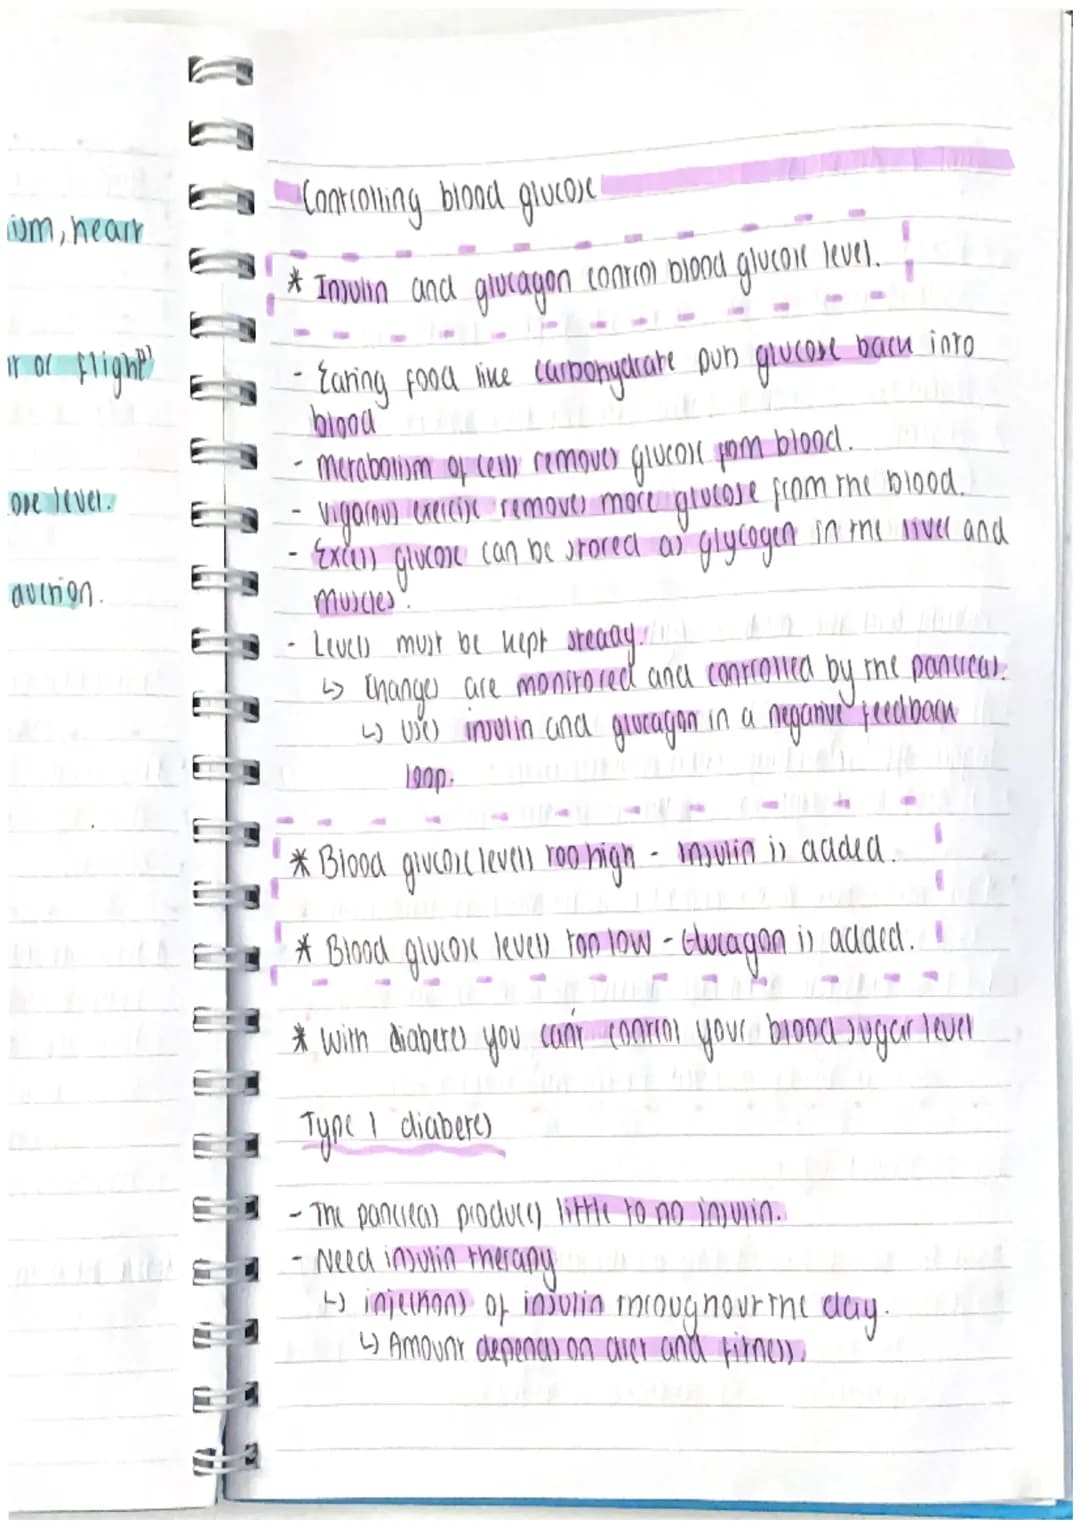 ism, heart
or flight"
one level.
auction.
Controlling blood glucose
* Insulin and glucagon control blood glucose level.
- Eating food like carbohydrate puts glucose back into
blood
- Metabolism of cells removes glucose from blood.
- Vigarous exercise removes more glucose from the blood.
- Excess glucose can be stored as glycogen in the liver and
muscles.
- Levels must be kept steady.
↳ Changes are monitored and controlled by the pancreas.
↳ Uses insulin and glucagon in a negative feedback
loop.
* Blood glucose levels too high - Insulin is added.
* Blood glucose levels too low - Glucagon is added.
* With diabetes you can't control your blood sugar level
Type 1 diabetes
- The pancreas produces little to no insulin.
- Need insulin therapy
↳ injections of insulin throughout the day.
↳ Amount depends on diet and fitness.